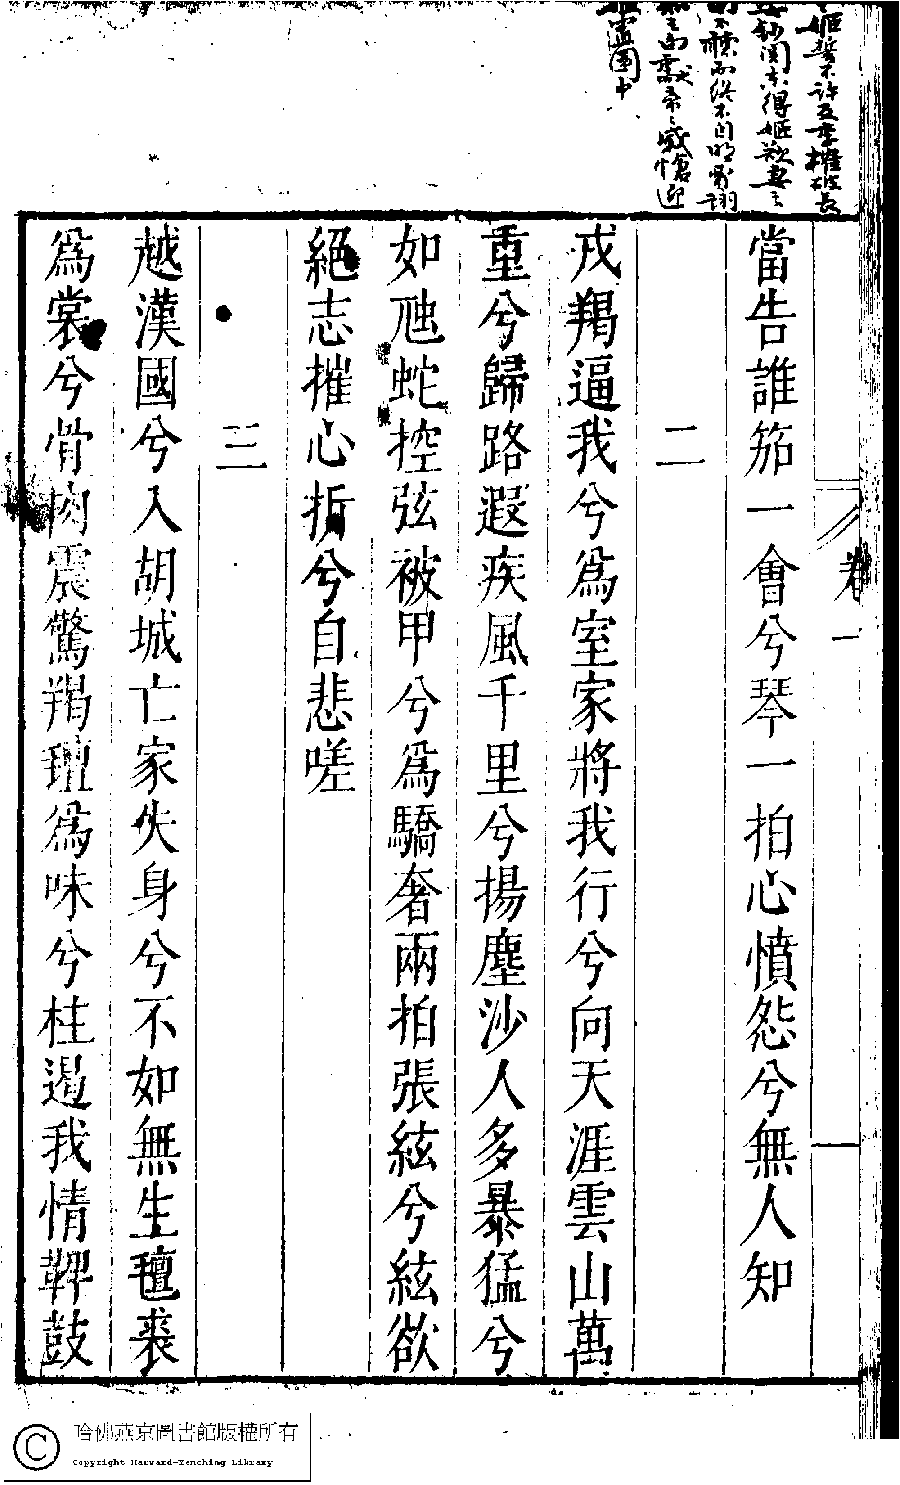 姬誓不許
卷一
當告誰笳一會兮琴一拍心憤怨兮無人知
二
戎羯逼我兮爲室家將我行兮向天涯雲山萬
重兮歸路遐疾風千里兮揚塵沙人多暴猛兮
如虺蛇控弦被甲兮爲驕奢兩拍張絃兮絃欲
絕志摧心折兮自悲嗟
三
越漢國兮入胡城亡家失身兮不如無生氊裘
爲裳兮骨肉震驚羯羶爲味兮枉遏我情鞞鼓
哈佛燕京圖書館版權所有
Copyright Harvard-Yenching Library